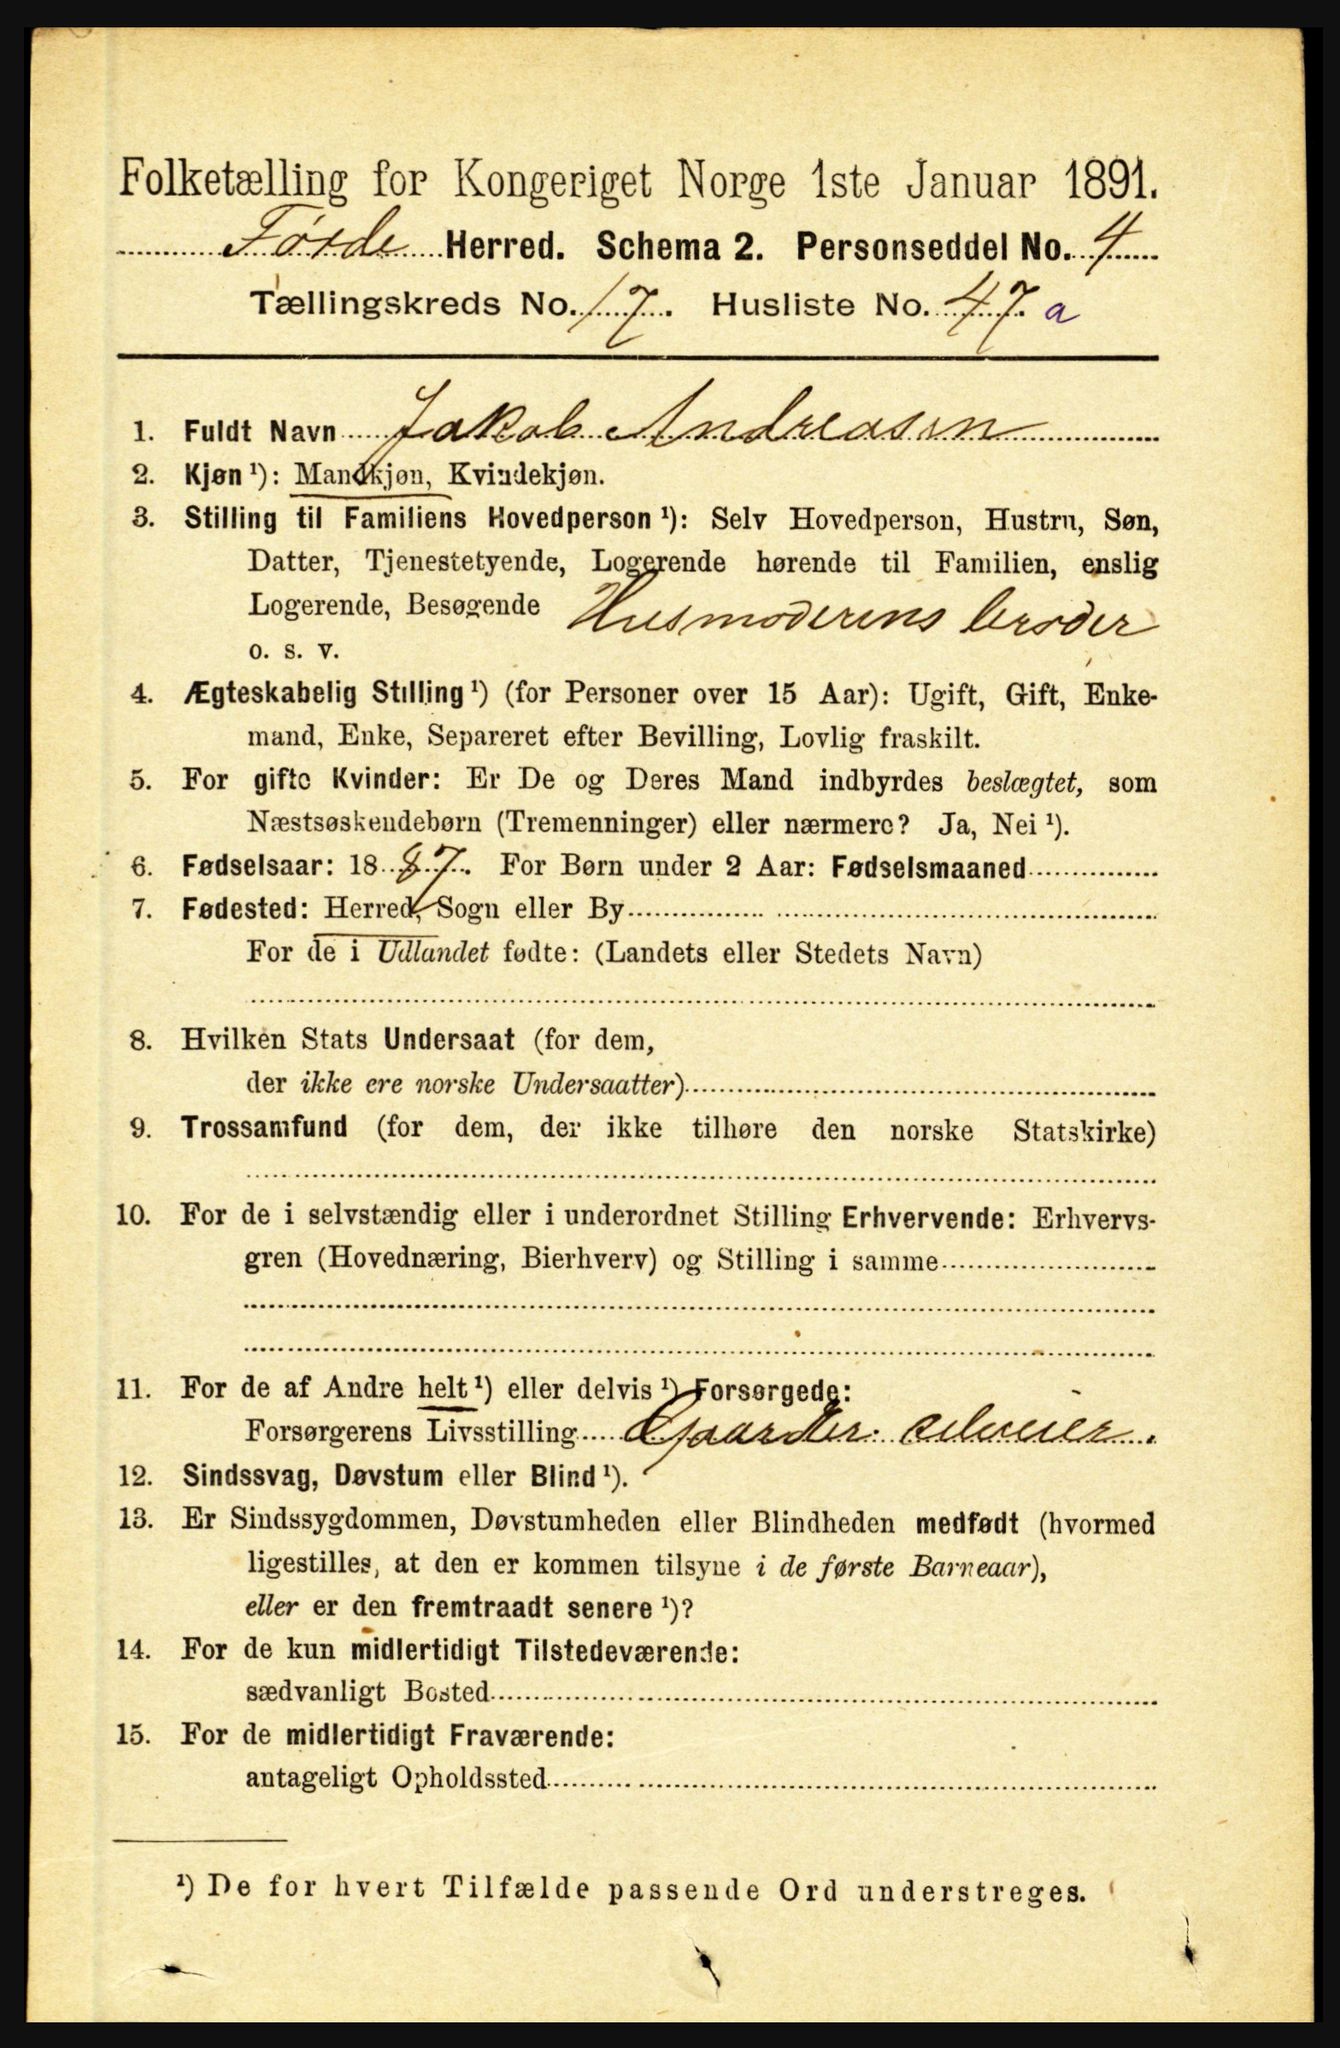 Folketælling for Kongeriget Norge 1ste Januar 1891.
Førde Herred. Schema 2. Personseddel No. 4
Tællingskreds No. 17. Husliste No. 47. a
1. Fuldt Navn Jakob Andreasen
2. Kjøn ¹): Mandkjøn, Kvindekjøn.
3. Stilling til Familiens Hovedperson ¹): Selv Hovedperson, Hustru, Søn,
Datter, Tjenestetyende, Logerende hørende til Familien, enslig
Logerende, Besøgende Husmoderens broder
o. s. v.
4. Ægteskabelig Stilling ¹) (for Personer over 15 Aar): Ugift, Gift, Enke-
mand, Enke, Separeret efter Bevilling, Lovlig fraskilt.
5. For gifte Kvinder: Er De og Deres Mand indbyrdes beslægtet, som
Næstsøskendebørn (Tremenninger) eller nærmere? Ja, Nei ¹).
6. Fødselsaar: 1887. For Børn under 2 Aar: Fødselsmaaned
7. Fødested: Herred, Sogn eller By
For de i Udlandet fødte: (Landets eller Stedets Navn)
8. Hvilken Stats Undersaat (for dem,
der ikke ere norske Undersaatter)
9. Trossamfund (for dem, der ikke tilhøre den norske Statskirke)
10. For de i selvstændig eller i underordnet Stilling Erhvervende: Erhvervs-
gren (Hovednæring, Bierhverv) og Stilling i samme
11. For de af Andre helt ¹) eller delvis ¹) Forsørgede:
Forsørgerens Livsstilling Gaardbr. selveier.
12. Sindssvag, Døvstum eller Blind ¹).
13. Er Sindssygdommen, Døvstumheden eller Blindheden medfødt (hvormed
ligestilles, at den er kommen tilsyne i de første Barneaar),
eller er den fremtraadt senere ¹)?
14. For de kun midlertidigt Tilstedeværende:
sædvanligt Bosted
15. For de midlertidigt Fraværende:
antageligt Opholdssted
¹) De for hvert Tilfælde passende Ord understreges.